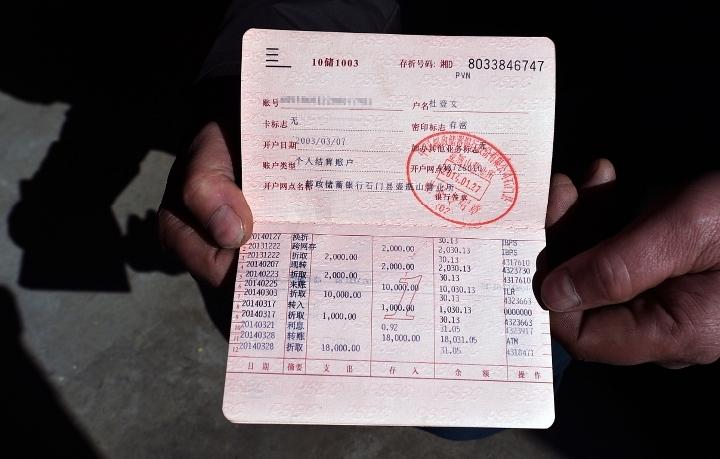 10储1003 存折号码: 湘D 8033846747
PVN
账号 户名 杜登文
卡标志 无 密印标志 有密
开户日期 2003/03/07 加办其他业务标志
账户类型 个人结算账户 开户网点
开户网点名称 邮政储蓄银行石门县壶瓶山营业所
银行签章
2014.01.27
20140127 换折 30.13 IBPS
20131222 跨网存 2,000.00 2,030.13 IBPS
20131222 折取 2,000.00 30.13 4317610
20140207 现转 2,000.00 2,030.13 4323730
20140223 折取 2,000.00 30.13 4317610
20140225 来账 10,000.00 10,030.13 TLR
20140303 折取 10,000.00 30.13 4323663
20140317 转入 1,000.00 1,030.13 0000000
20140317 折取 1,000.00 30.13 4323663
20140321 利息 0.92 31.05 4323917
20140328 转账 18,000.00 18,031.05 ATM
20140328 折取 18,000.00 31.05 4318471
日 期 摘要 支 出 存 入 余 额 操 作